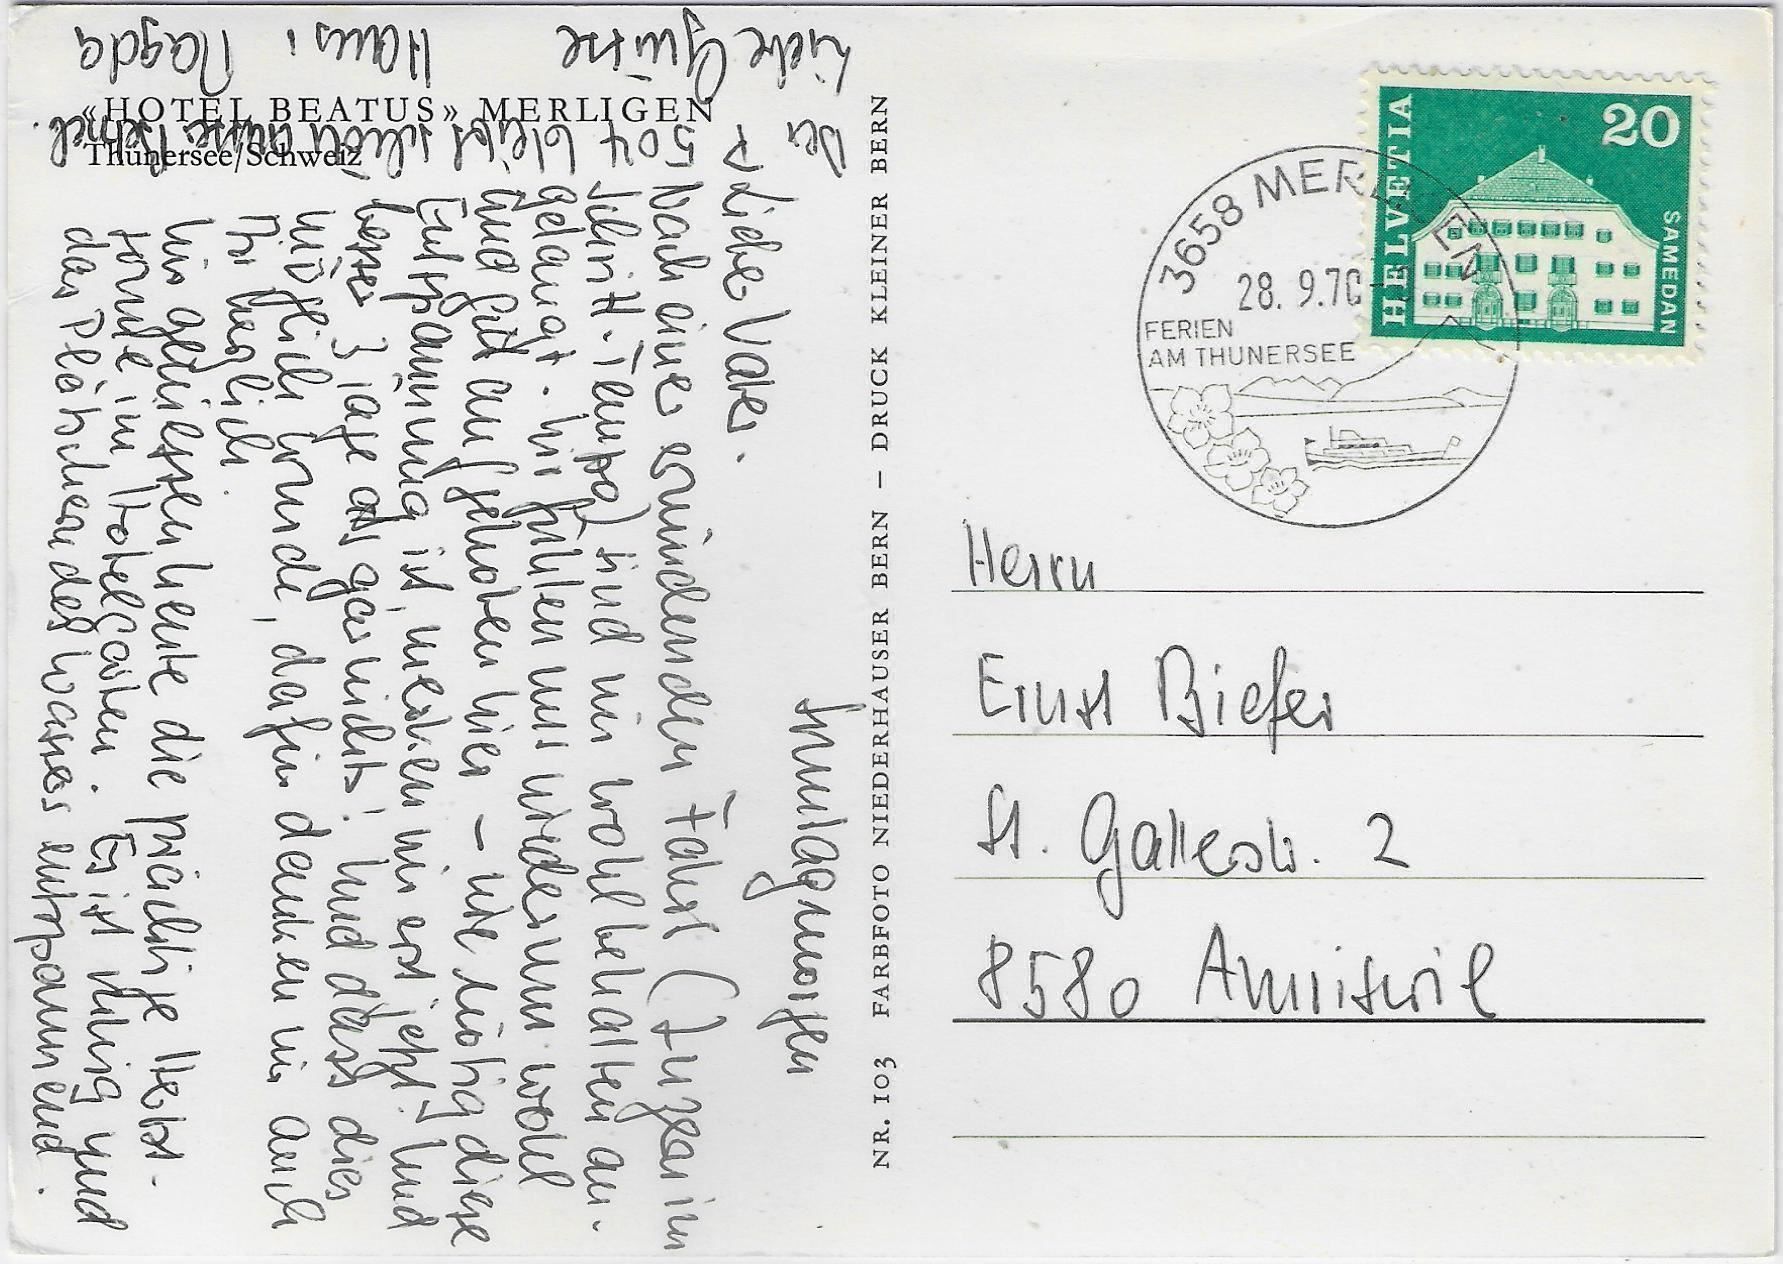 «HOTEL BEATUS» MERLIGEN
Thunersee/Schweiz
Sonntagmorgen
Lieber Vater.
Nach einer ermüdenden Fahrt (Luzern im
Schritt-Tempo) sind wir wohlbehalten an-
gelangt. Wir fühlen uns wiederum wohl
und gut aufgehoben hier – wie nötig diese
Entspannung ist, merken wir erst jetzt. Und
besser 3 Tage als gar nichts! Und dass dies
möglich wurde, dafür danken wir auch
Dir herzlich.
Wir geniessen heute die prächtige Herbst-
sonne im Hotelgarten. Es ist ruhig und
das Plätschern des Wassers entspannend.
Der 504 bleibt schön
Liebe Grüsse Hansi Magda
NR. 103 FARBFOTO NIEDERHAUSER BERN – DRUCK KLEINER BERN
HELVETIA
20
SAMEDAN
3658 MERLIGEN
28. 9.70
FERIEN
AM THUNERSEE
Herrn
Ernst Biefer
St. Gallerstr. 2
8580 Amriswil